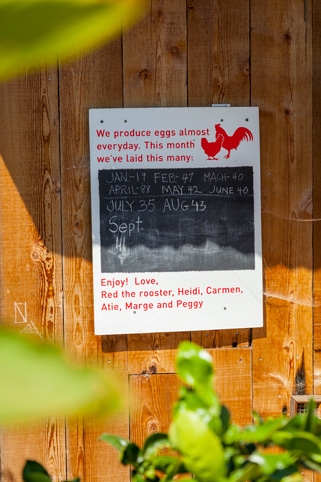 We produce eggs almost
everyday. This month
we've laid this many:
JAN-19 FEB-47 MACH-40
APRIL-88 MAY 42 JUNE 40
JULY 35 AUG 43
Sept.
Enjoy! Love,
Red the rooster, Heidi, Carmen,
Atie, Marge and Peggy